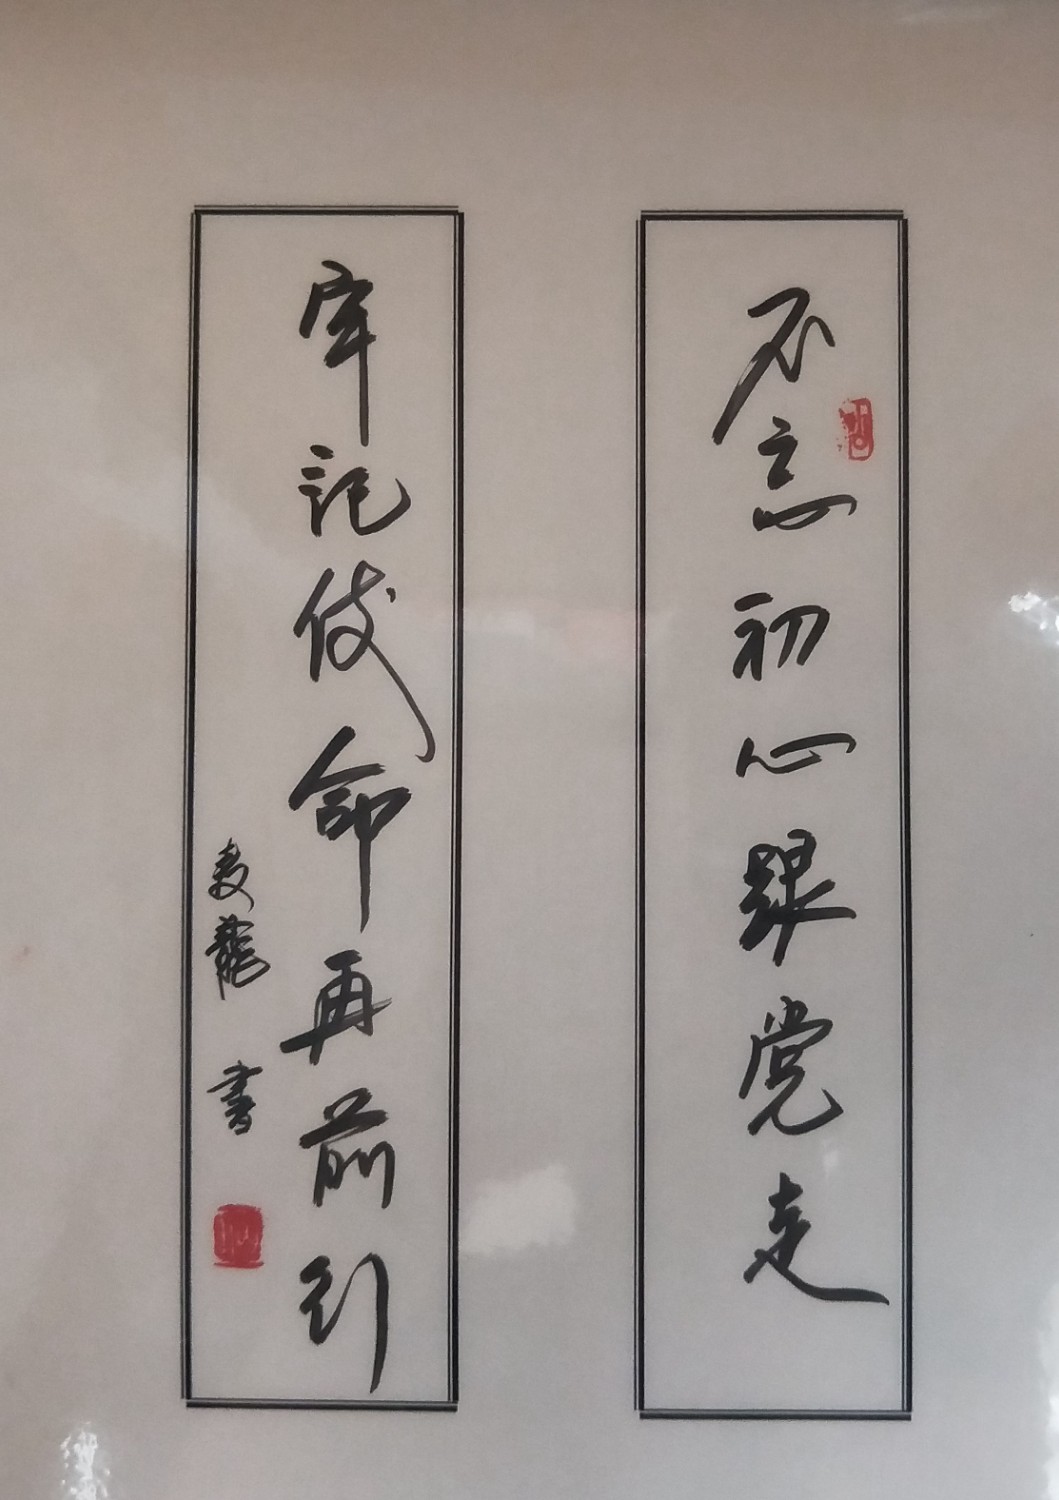 不忘初心跟党走
牢记使命再前行
龍 書